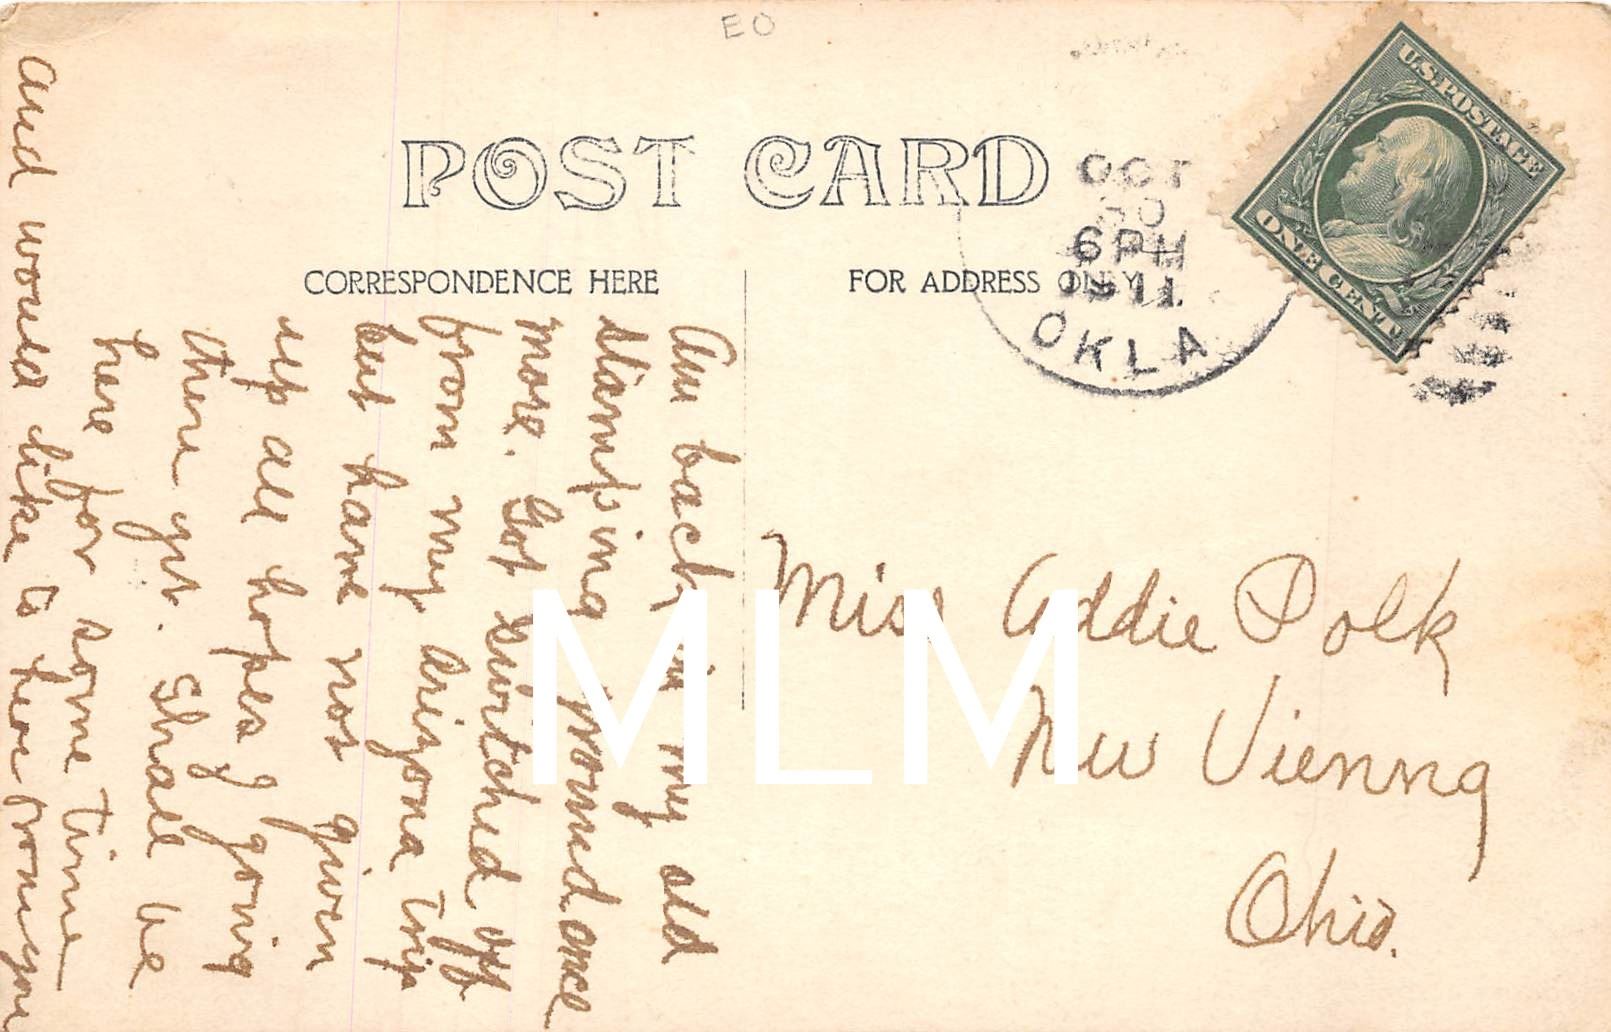 EO
POST CARD
CORRESPONDENCE HERE
FOR ADDRESS ONLY
U.S. POSTAGE
ONE CENT
OCT
30
6 PM
1911
OKLA
Am back in my old
stamping ground once
more. Got switched off
from my Arizona trip
but have not given
up all hopes of going
there yet. Shall be
here for some time
and would like to hear from you
Miss Addie Polk
New Vienna
Ohio.
MLM